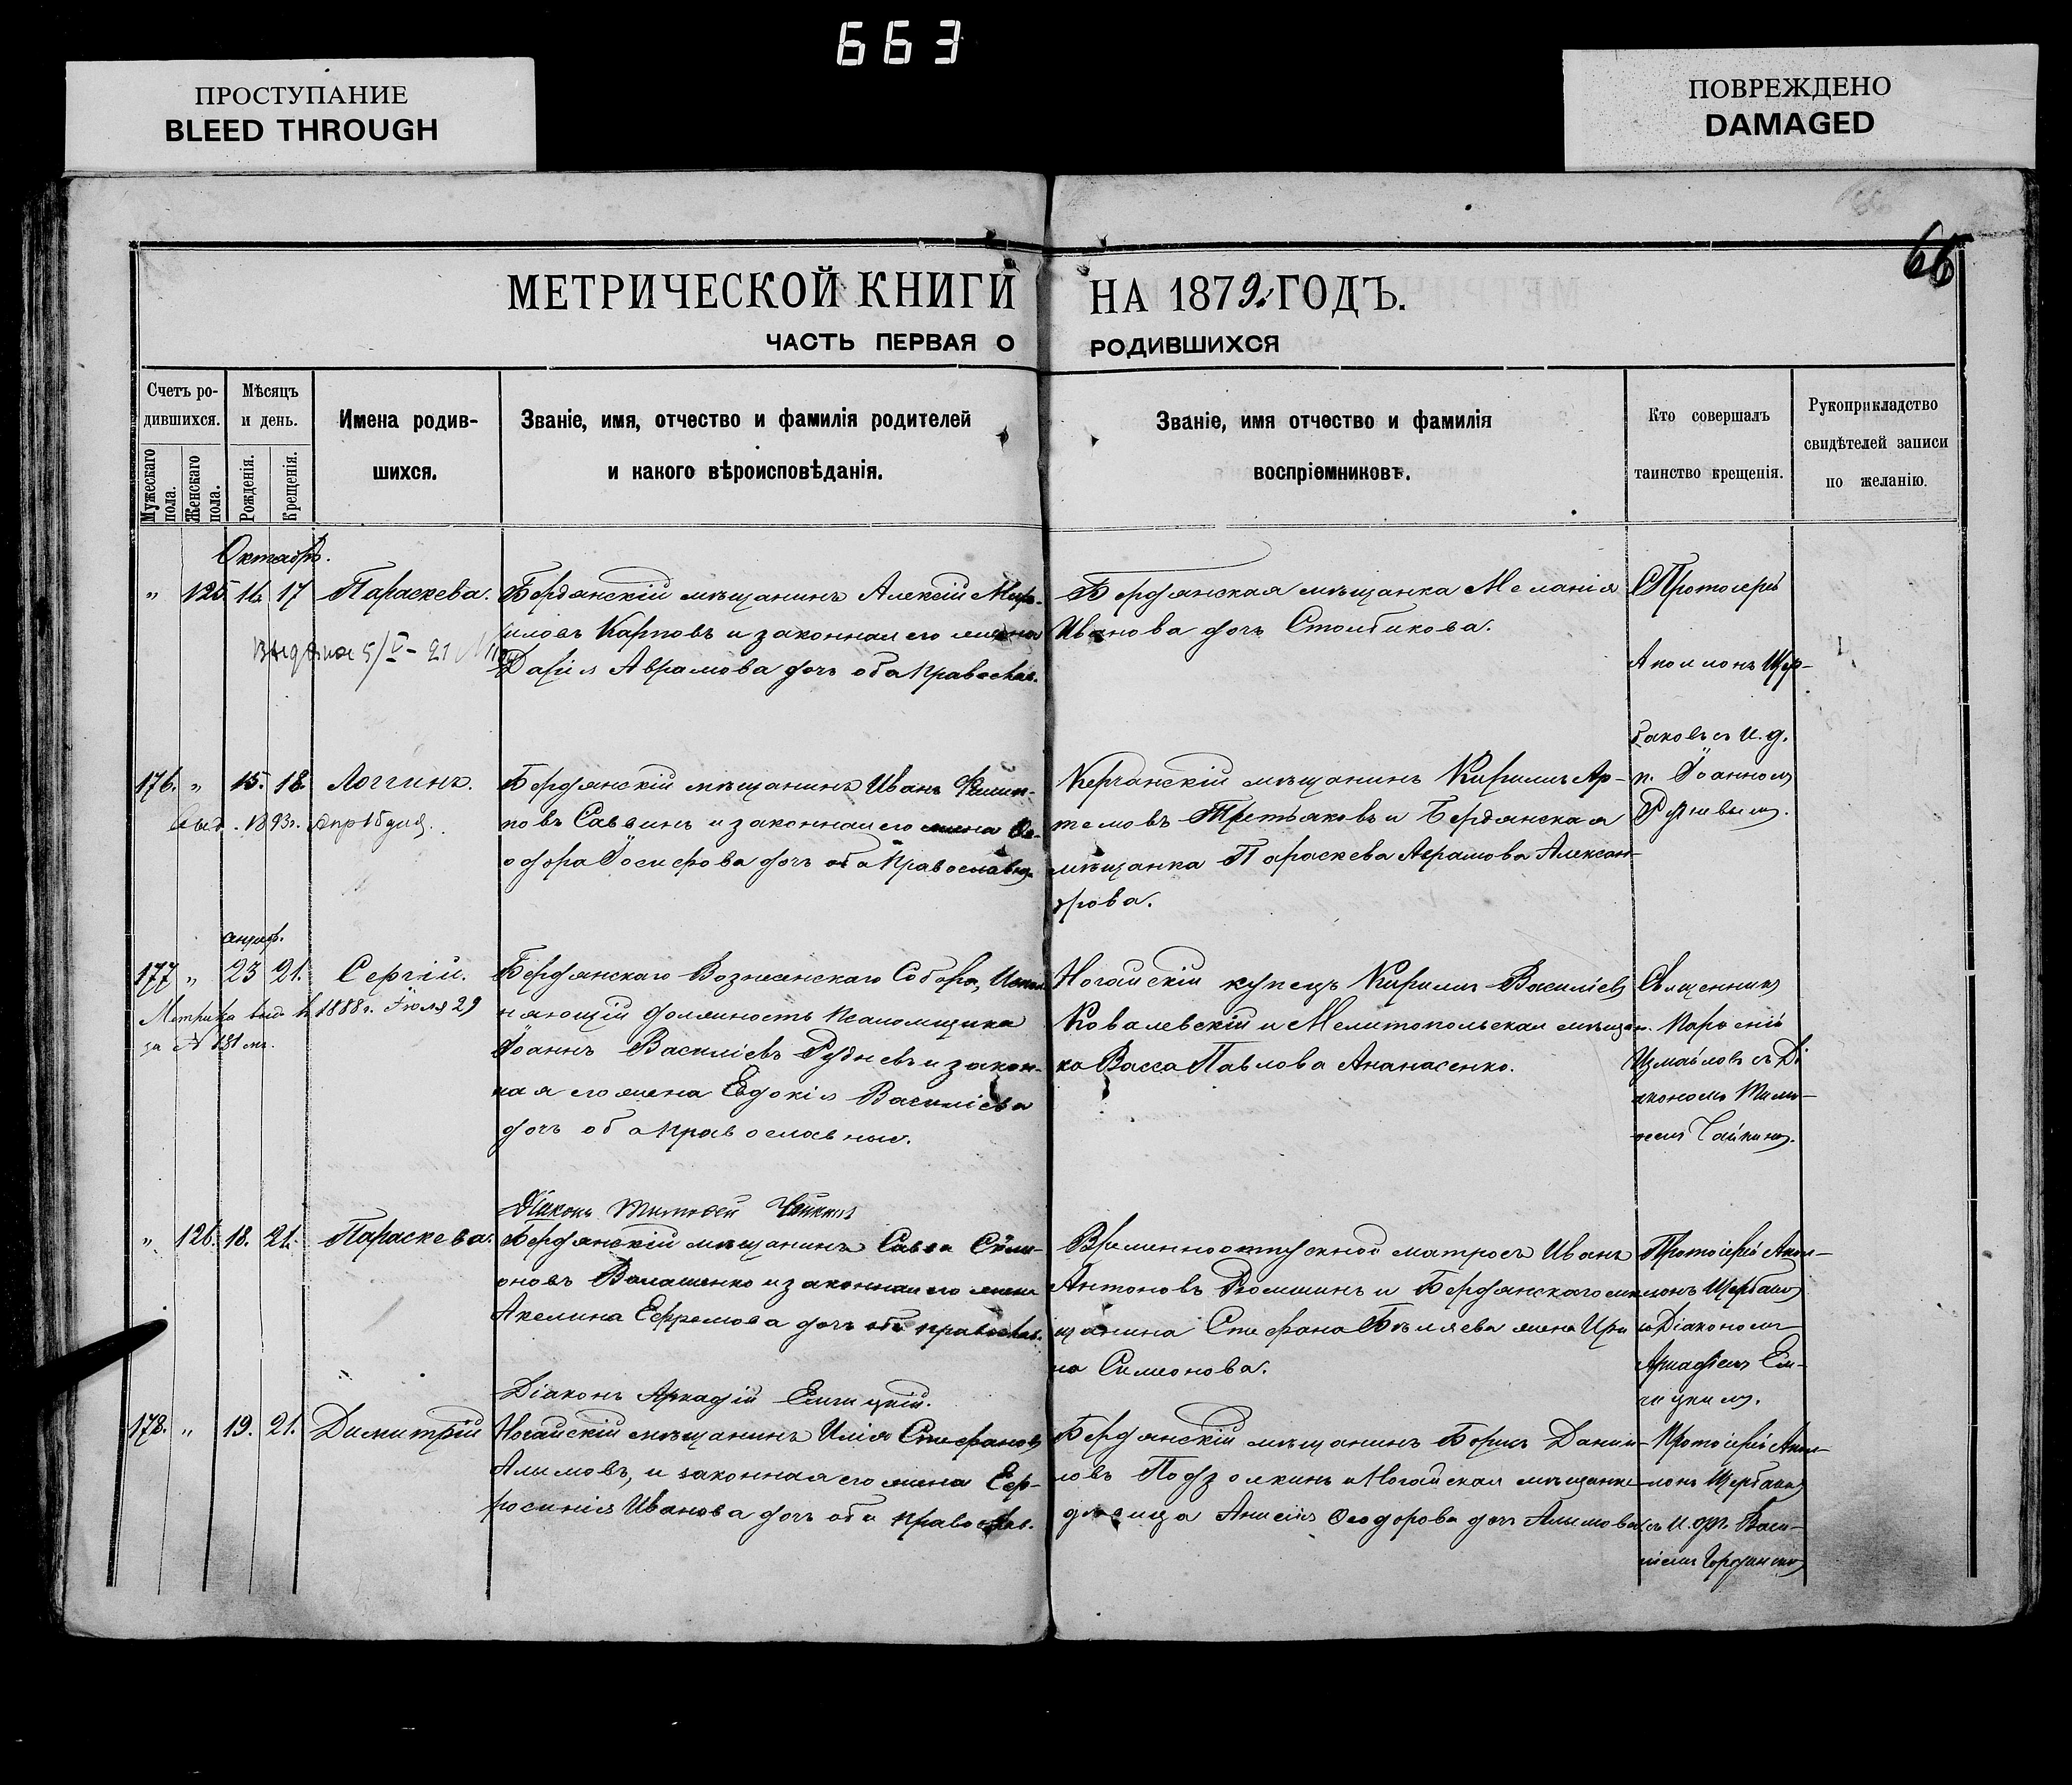 663
ПРОСТУПАНИЕ
BLEED THROUGH
ПОВРЕЖДЕНО
DAMAGED
66
МЕТРИЧЕСКОЙ КНИГИ НА 1879 ГОДЪ.
ЧАСТЬ ПЕРВАЯ О РОДИВШИХСЯ
Счетъ ро-
дившихся.
Мужескаго пола.
Женскаго пола.
Мѣсяцъ
и день.
Рожденія.
Крещенія.
Имена родив-
шихся.
Званіе, имя, отчество и фамилія родителей
и какого вѣроисповѣданія.
Званіе, имя отчество и фамилія
воспріемниковъ.
Кто совершалъ
таинство крещенія.
Рукоприкладство
свидѣтелей записи
по желанію.
Октябрь.
" 125 16. 17 Параскева.
Бердянскій мѣщанинъ Алексій
Карповъ и законная его жена
Дарія Аврамова дочь оба православ.
Бердянская мѣщанка Меланія
Иванова дочь Столбикова.
Протоіерей
Аполлонъ Щер-
баковъ съ и. д.
п. Іоанномъ
Рудневымъ.
176. " 15. 18. Логгинъ.
выд. 1893г.
Бердянскій мѣщанинъ Иванъ Филип-
повъ Саввинъ и законная его жена Ѳе-
одора Іосифова дочь оба православн.
Керчанскій мѣщанинъ Кирилъ Ар-
темовъ Третьяковъ и Бердянская
мѣщанка Параскева Аврамова Алексан-
дрова.
177 " 23 21. Сергій.
Метрика выд. въ 1888г. Іюля 29
за № 131
Бердянскаго Вознесенскаго Собора, Испол
няющій должность псаломщика
Іоаннъ Василіевъ Рудневъ и закон-
ная его жена Евдокія Василіева
дочь оба православные.
Ногайскій купецъ Кирилъ Василіевъ
Ковалевскій и Мелитопольская мѣщан-
ка Васса Павлова Ананасенко.
Священникъ
Измаиловъ съ Ді
акономъ Тимо-
ѳеемъ Чайкинъ.
Діаконъ Тимоѳей Чайкинъ
" 126. 18. 21. Параскева.
Бердянскій мѣщанинъ Савва Сѵми-
оновъ Валашенко и законная его жена
Акелина Ефремова дочь оба православ.
Временноотпускной матросъ Иванъ
Антоновъ Ѳомишинъ и Бердянскаго мѣ
щанина Стефана Бѣляева жена Ири
на Симеонова.
Протоіерей Апол-
лонъ Щербаковъ
съ Діакономъ
Аркадіемъ Ели-
чицкимъ.
Діаконъ Аркадій Еличицкій.
178. " 19. 21. Димитрій
Ногайскій мѣщанинъ Илія Стефановъ
Алымовъ, и законная его жена Еф-
росинія Иванова дочь оба православ.
Бердянскій мѣщанинъ Борисъ Даніи-
ловъ Подзолкинъ и Ногайская мѣщанка
дѣвица Анисія Ѳеодорова дочь Алымова
Протоіерей Апол-
лонъ Щербаковъ
съ и. д. п. Васи-
ліемъ